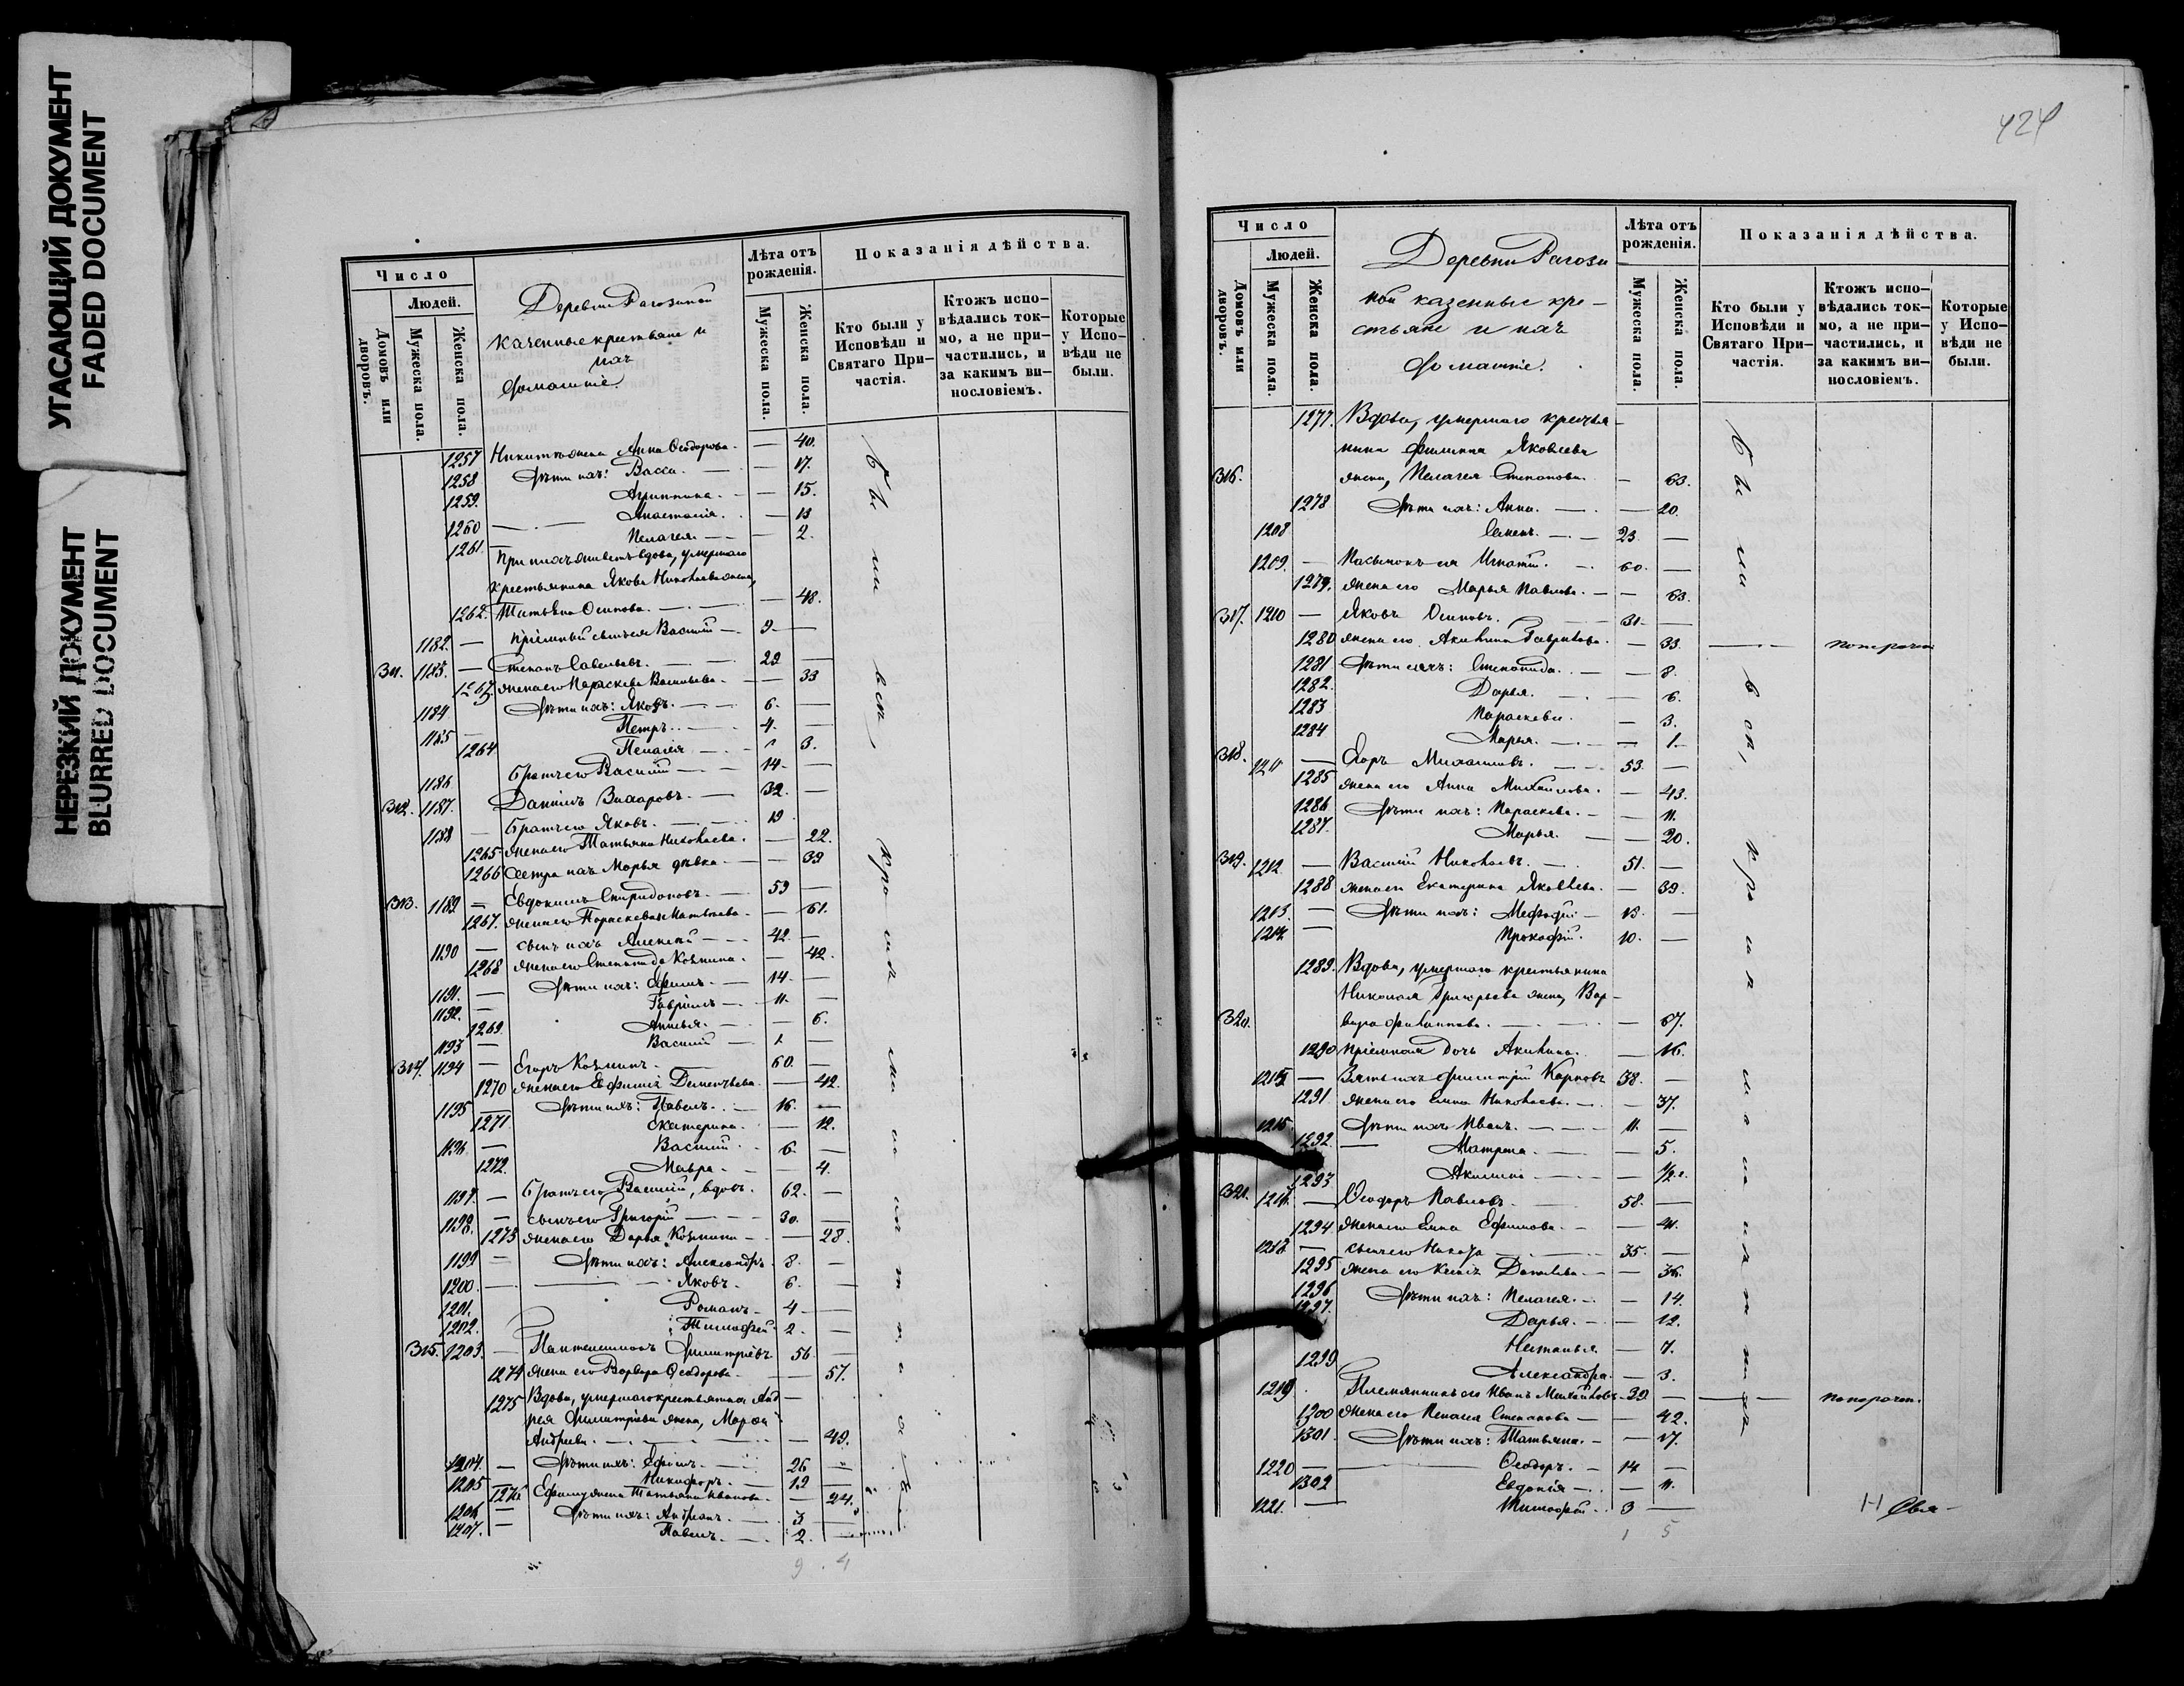 УГАСАЮЩИЙ ДОКУМЕНТ
FADED DOCUMENT
НЕРЕЗКИЙ ДОКУМЕНТ
BLURRED DOCUMENT
Число
Людей.
Домовъ или дворовъ.
Мужеска пола.
Женска пола.
Деревни Рагозиной
казенные крестьяне и
ихъ
домашніе.
Лѣта отъ рожденія.
Мужеска пола.
Женска пола.
Показанія дѣйства.
Кто были у Исповѣди и Святаго Причастія.
Ктожъ исповѣдались токмо, а не причастились, и за какимъ винословіемъ.
Которые у Исповѣди не были.
1257 Никиты жена Анна Ѳеодорова. — 40.
1258 Дѣти ихъ: Васса. — 17.
1259. Агрипина. — 15.
1260 Анастасія. — 13
1261. Пелагея. — 2.
При нихъ живетъ вдова, умершаго
крестьянина Якова Николаева жена,
1262. Татьяна Осипова. — 48.
1182. — Пріемный сынъ ея Василій — 9 —
311. 1183. — Степанъ Савельевъ. — 29 —
1263. жена его Параскева Васильева. — 33
1184 Дѣти ихъ: Яковъ. — 6. —
1185 — Петръ. — 4. —
1264 Пелагея — 3.
1186 Братъ его Василій — 14. —
312. 1187. Даніилъ Захаровъ. — 32. —
1188 — Братъ его Яковъ. — 19
1265 жена его Татьяна Николаева. — 22.
1266 Сестра ихъ Марья дѣвка — 39
313. 1189 — Евдокимъ Спиридоновъ. — 59 —
1267. жена его Параскева Матвѣева. — 61.
1190 — сынъ ихъ Алексѣй — 42. —
1268 жена его Степанида Козмина. — 42.
1191. — Дѣти ихъ: Ефимъ. — 14. —
1192. — Гавріилъ — 11. —
1269. — 6.
1193 — Василій — 1. —
314. 1194 — Егоръ Козминъ. — 60. —
1270 жена его Ефимія Дементьева. — 42.
1195 Дѣти ихъ: Павелъ. — 16. —
1271 Екатерина. — 12.
1196 — Василій. — 6. —
1272. Мавра. — 4.
1197. — Братъ его Василій, вдовъ. 62. —
1198. — сынъ его Григорій — 30. —
1273 жена его Дарья Козмина — 28.
1199 — Дѣти ихъ: Александръ. 8. —
1200 — Яковъ. 6. —
1201. Романъ — 4 —
1202. Тимофей. 2. —
315. 1203. — Пантелеимонъ Димитріевъ. 56 —
1274 жена его Варвара Ѳеодорова. — 57.
1275 Вдова, умершаго крестьянина Анд—
рея Димитріева жена, Марѳа
Андреева. — 49.
1204. — Дѣти ихъ: Ефимъ. — 26 —
1205 Никифоръ. — 12 —
1276 Ефима жена Татьяна Иванова. — 24.
1206 — Дѣти ихъ: Андріанъ. — 3 —
1207. — Павелъ. — 2. —
были всѣ, кроме
9 . 4
424
Число
Людей.
Домовъ или дворовъ.
Мужеска пола.
Женска пола.
Деревни Рагози
ной казенные кре—
стьяне и ихъ
домашніе.
Лѣта отъ рожденія.
Мужеска пола.
Женска пола.
Показанія дѣйства.
Кто были у Исповѣди и Святаго Причастія.
Ктожъ исповѣдались токмо, а не причастились, и за какимъ винословіемъ.
Которые у Исповѣди не были.
1277. Вдова, умершаго крестья—
нина Филиппа Яковлева
316. жена, Пелагея Степанова. — 63.
1278 Дѣти ихъ: Анна. — 20.
1208 Семенъ. — 23. —
1209. — Пасынокъ ея Игнатій. — 60. —
1279. жена его Марья Павлова. — 63.
317. 1210 — Яковъ Осиповъ. 31. —
1280 жена его Акилина Гаврилова. — 33.
1281 Дѣти ихъ: Степанида. — 8.
1282. Дарья. — 6.
1283 Параскева. — 3.
1284 Марья. — 1.
318. 1211 — Егоръ Михайловъ. — 53. —
1285 жена его Анна Михайлова. — 43.
1286 Дѣти ихъ: Параскева. — 11.
1287. Марья. — 20.
319. 1212 — Василій Николаевъ. — 51. —
1288 жена его Екатерина Яковлева. — 39.
1213. — Дѣти ихъ: Меѳодій — 13. —
1214 — Прокофій. 10. —
1289. Вдова, умершаго крестьянина
Николая Григорьева жена, Вар—
320. вара Филиппова. — 67.
1290 Пріемная дочь Акилина. — 16.
1215 — Зять ихъ Димитрій Карповъ 38. —
1291 жена его Елена Николаева. — 37.
1216. Дѣти ихъ Иванъ. — 11. —
1292. — Матрена. — 5.
1293 Акилина — 1/2 г.
321. 1217. — Ѳеодоръ Павловъ. — 58. —
1294 жена его Елена Ефимова. — 41.
1218 — сынъ его Никола — 35. —
1295 жена его Ксенія Данилова. — 36.
1296 Дѣти ихъ: Пелагея. — 14.
1297. Дарья. — 12.
Наталья — 7.
1299 Александра. — 3.
1219 Племянникъ его Иванъ Михайловъ. 39. —
1300 жена его Пелагея Степанова — 42.
1301. Дѣти ихъ: Татьяна. — 17.
1220 — Ѳеодоръ. — 14 —
1302 Евдокія — 11.
1221. — Тимофей. 3 —
были всѣ, кроме
1 5